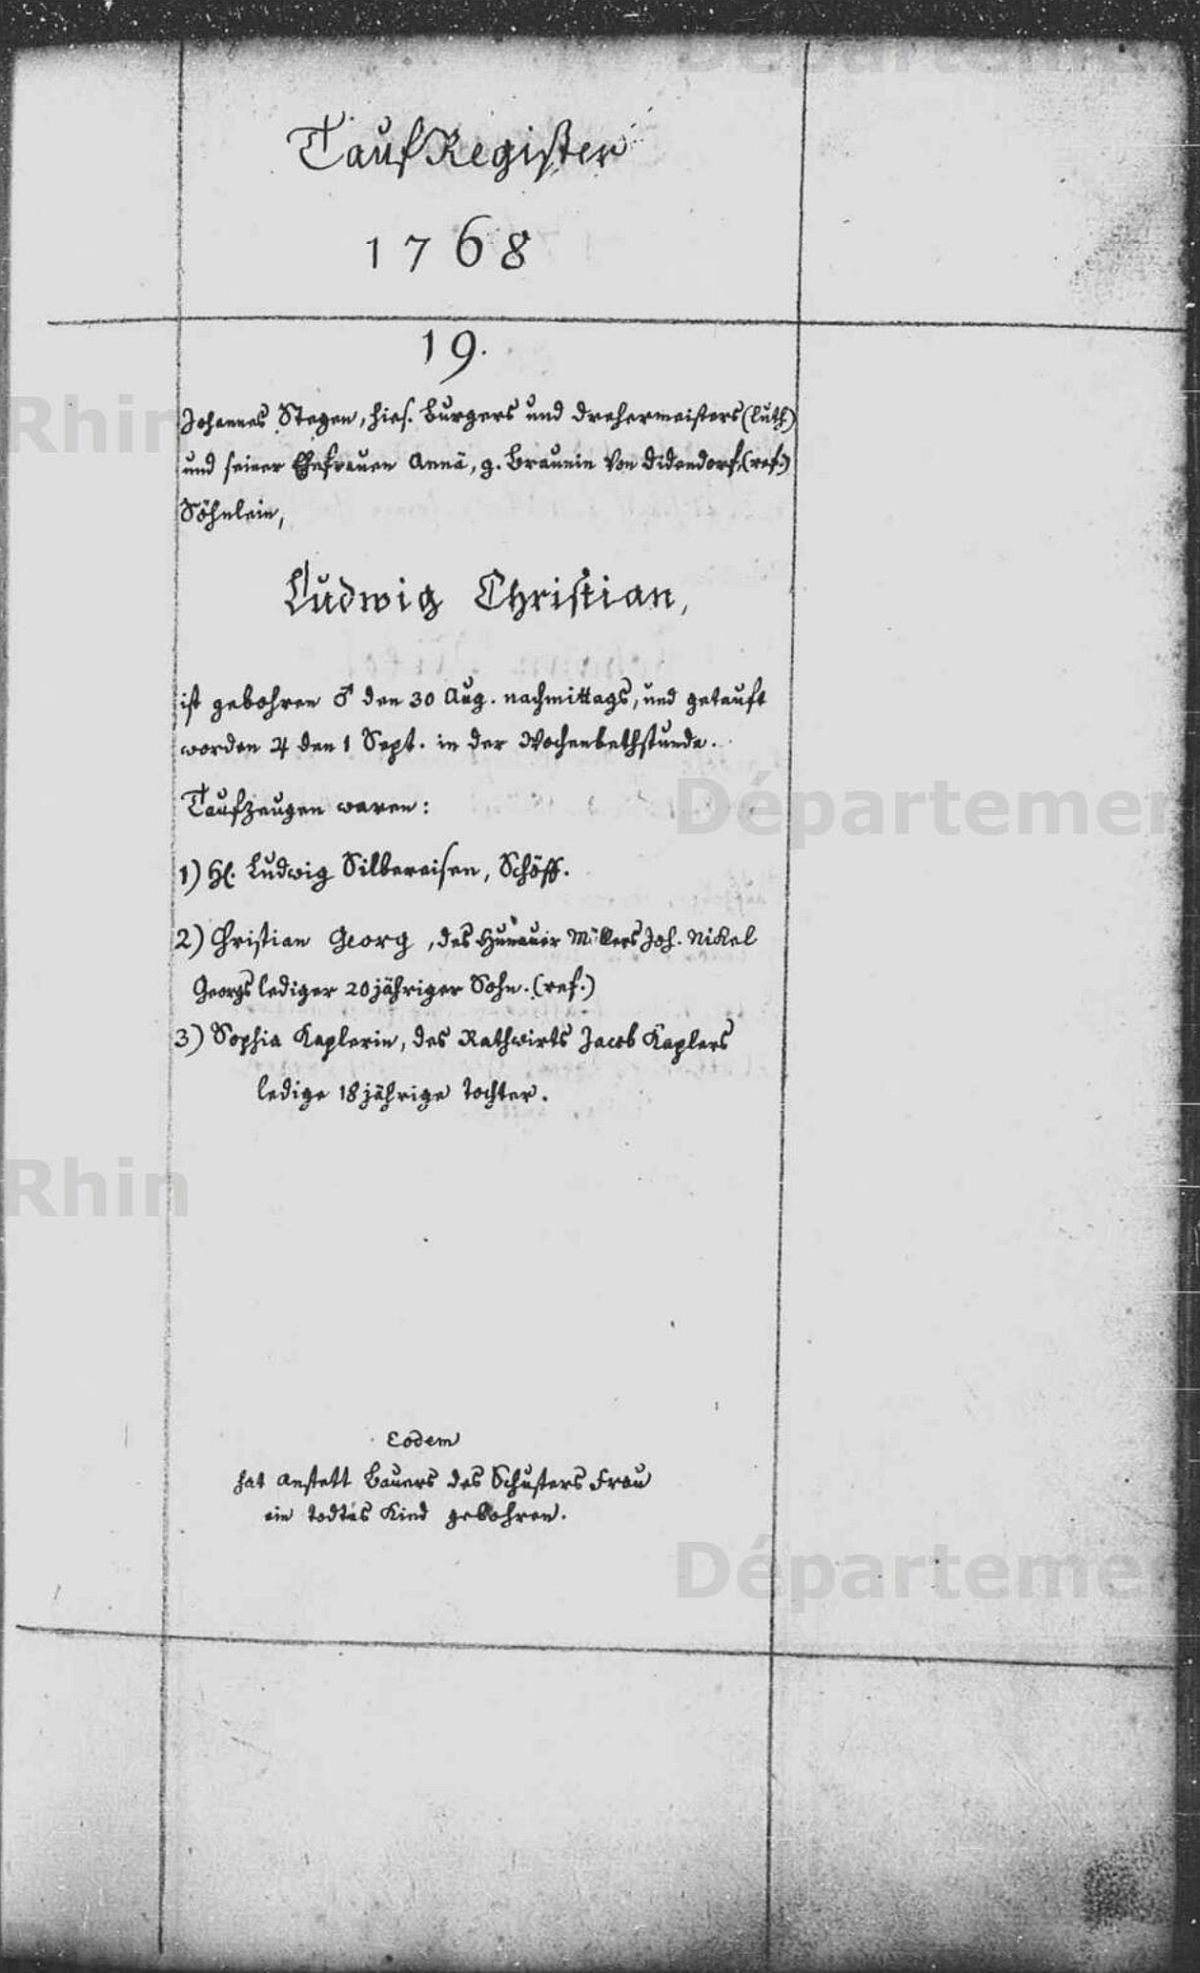 Départemen
TaufRegister
1768
19.
Rhin
Johannes Stegen, hies. Burgers und Drehermeisters (luth)
und seiner Ehefrauen Annä, g. Braunin von Didendorf, (ref.)
Söhnlein,
Ludwig Christian,
ist gebohren ♂ den 30 Aug. nachmittags, und getauft
worden ♃ den 1 Sept. in der Wochenbethstunde.
Taufzeugen waren:
Départemen
1) H. Ludwig Silbereisen, Schöff.
2) Christian Georg, des Hunauer Müllers Joh. Nickel
Georgs lediger 20jähriger Sohn. (ref.)
3) Sophia Kaplerin, des Rathwirts Jacob Kaplers
ledige 18jährige Tochter.
Rhin
Eodem
hat Anstett Bauers des Schusters Frau
ein todtes Kind gebohren.
Départemen